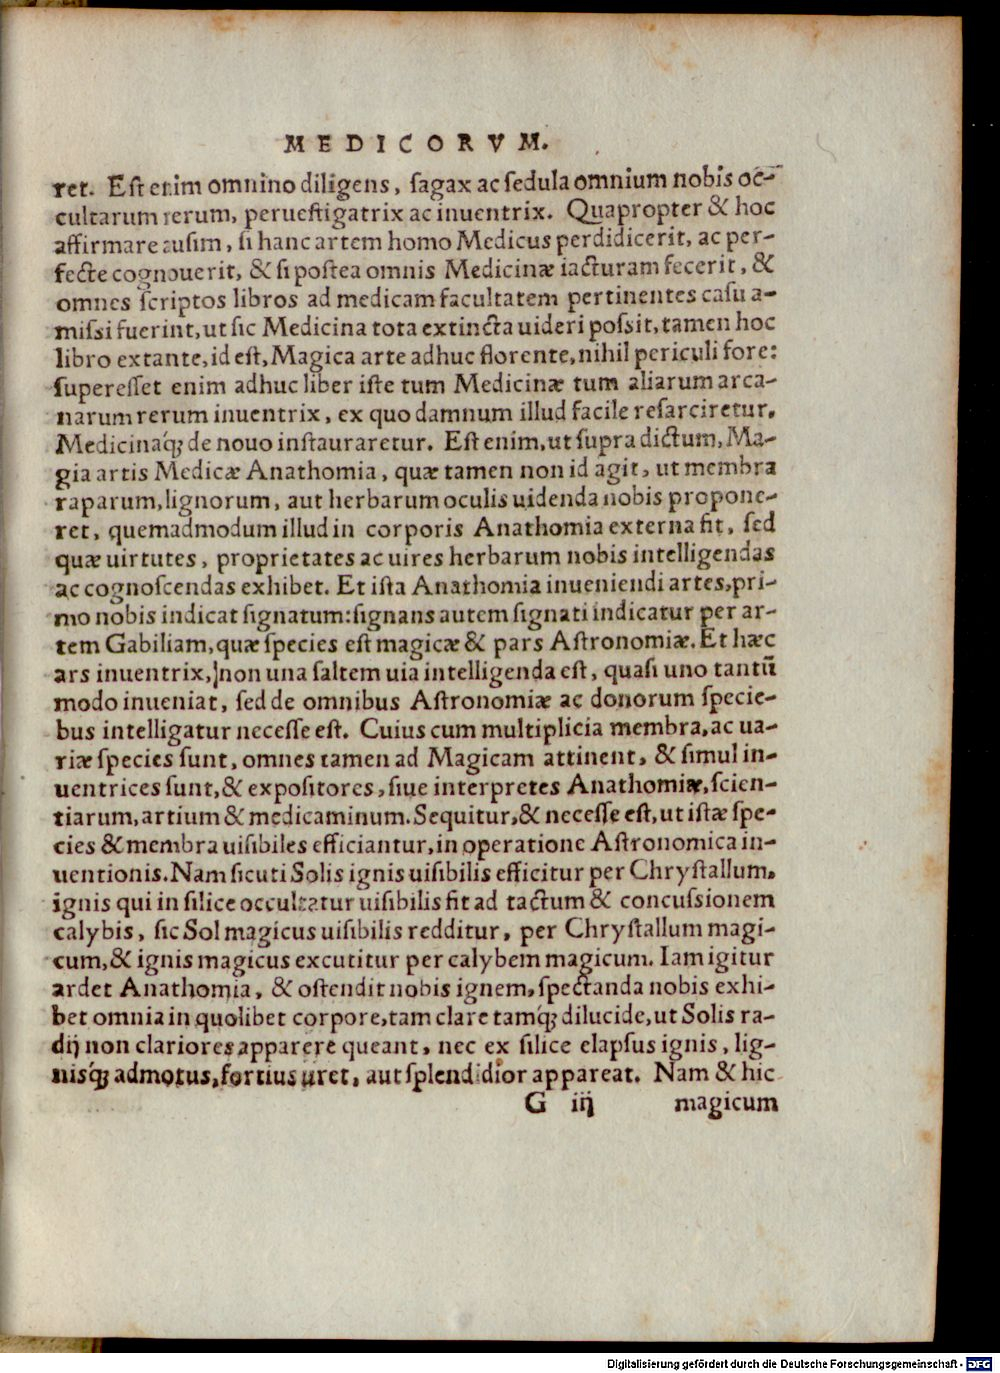 MEDICORVM.
ret. Est enim omnino diligens, sagax ac sedula omnium nobis oc-
cultarum rerum, peruestigatrix ac inuentrix. Quapropter & hoc
affirmare ausim, si hanc artem homo Medicus perdidicerit, ac per-
fecte cognouerit, & si postea omnis Medicinæ iacturam fecerit, &
omnes scriptos libros ad medicam facultatem pertinentes casu a-
missi fuerint, ut sic Medicina tota extincta uideri possit, tamen hoc
libro extante, id est, Magica arte adhuc florente, nihil periculi fore:
superesset enim adhuc liber iste tum Medicinæ tum aliarum arca-
narum rerum inuentrix, ex quo damnum illud facile resarciretur,
Medicinaq́; de nouo instauraretur. Est enim, ut supra dictum, Ma-
gia artis Medicæ Anathomia, quæ tamen non id agit, ut membra
raparum, lignorum, aut herbarum oculis uidenda nobis propone-
ret, quemadmodum illud in corporis Anathomia externa fit, sed
quæ uirtutes, proprietates ac uires herbarum nobis intelligendas
ac cognoscendas exhibet. Et ista Anathomia inueniendi artes, pri-
mo nobis indicat signatum: signans autem signati indicatur per ar-
tem Gabiliam, quæ species est magicæ & pars Astronomiæ. Et hæc
ars inuentrix, non una saltem uia intelligenda est, quasi uno tantū
modo inueniat, sed de omnibus Astronomiæ ac donorum specie-
bus intelligatur necesse est. Cuius cum multiplicia membra, ac ua-
riæ species sunt, omnes tamen ad Magicam attinent, & simul in-
uentrices sunt, & expositores, siue interpretes Anathomiæ, scien-
tiarum, artium & medicaminum. Sequitur, & necesse est, ut istæ spe-
cies & membra uisibiles efficiantur, in operatione Astronomica in-
uentionis. Nam sicuti Solis ignis uisibilis efficitur per Chrystallum,
ignis qui in silice occultatur uisibilis fit ad tactum & concussionem
calybis, sic Sol magicus uisibilis redditur, per Chrystallum magi-
cum, & ignis magicus excutitur per calybem magicum. Iam igitur
ardet Anathomia, & ostendit nobis ignem, spectanda nobis exhi-
bet omnia in quolibet corpore, tam clare tamq́; dilucide, ut Solis ra-
dij non clariores apparere queant, nec ex silice elapsus ignis, lig-
nisq́; admotus, fortius uret, aut splendidior appareat. Nam & hic
G iij magicum
Digitalisierung gefördert durch die Deutsche Forschungsgemeinschaft - DFG